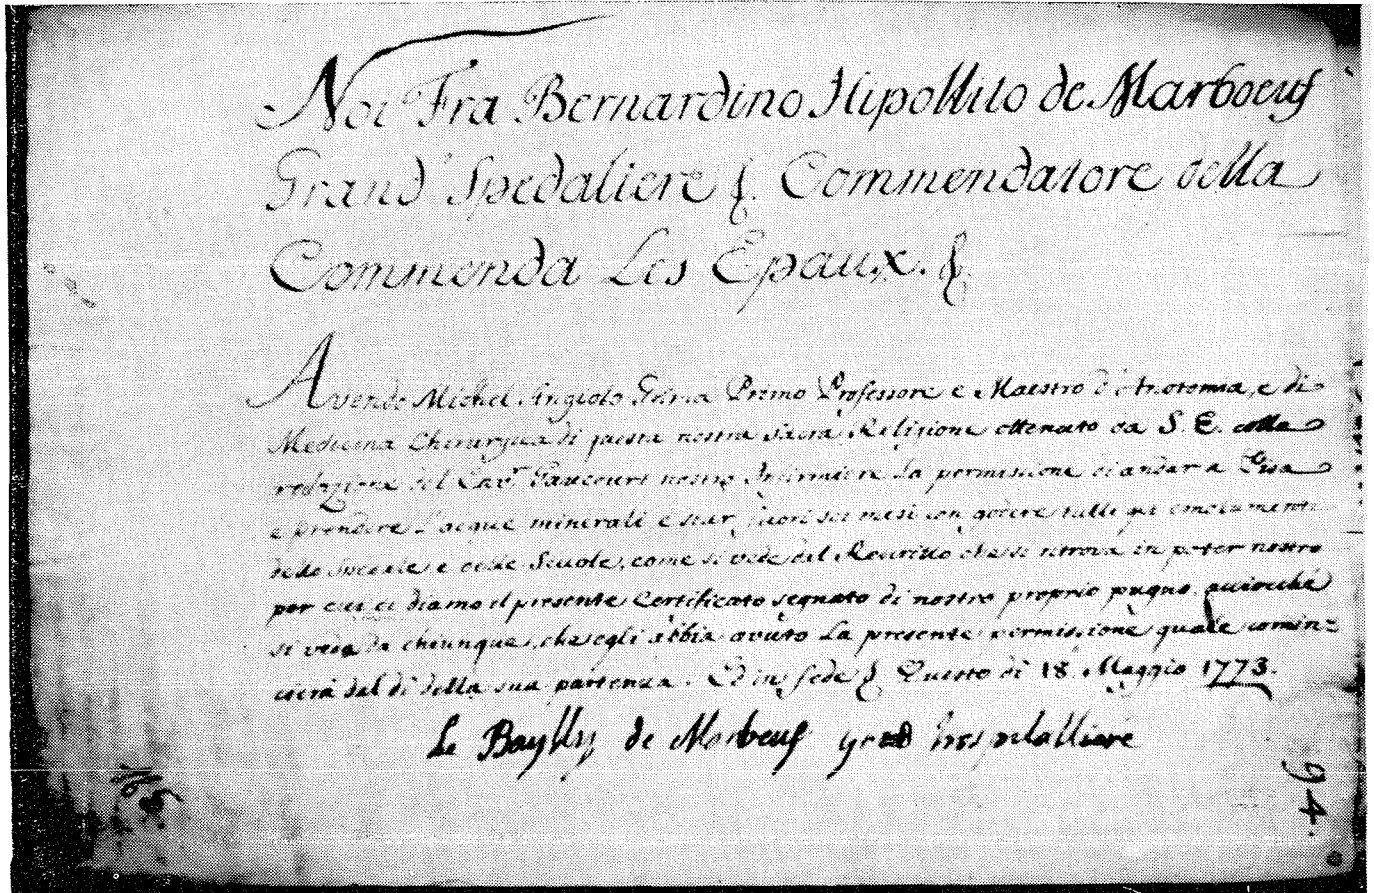 Noi Fra Bernardino Hipollito de Marboeuf
Grand' Spedaliere &. Commendatore della
Commenda Les Epaux. &.
Avendo Michel Angiolo Grima Primo Professore e Maestro d'Anotomia, e di
Medicina Chirurgica di questa nostra Sacra Religione ottenuto da S. E. colla
relazione del Cav.r nostro Infirmiere la permissione di andar a Pisa
e prendere l'acque minerali e star fuori sei mesi con godere tutti gli emolumenti
dello spedale e delle Scuole, come si vede dal Rescritto che si ritrova in poter nostro
per cui ci diamo il presente Certificato segnato di nostro proprio pugno, acciocché
si veda da chiunque, che egli abbia avuto la presente permissione quale comin=
cierà dal di della sua partenza. Ed in fede & Questo di 18. Maggio 1773.
Le Baylly de Marbeuf grand hospitalliere
94.